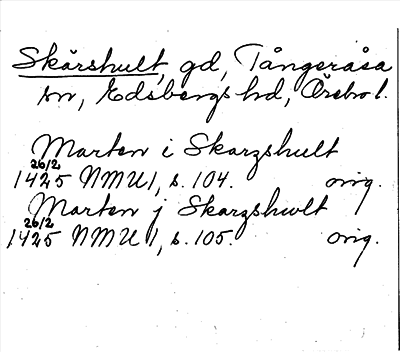 Skårshult, gd, Tångeråsa
sn, Edsbergs hd, Örebro l.
Marten i Skarzshult
26/2
1425 NMU 1, s. 104. orig.
Marten j Skarzshwlt
26/2
1425 NMU 1, s. 105. orig.